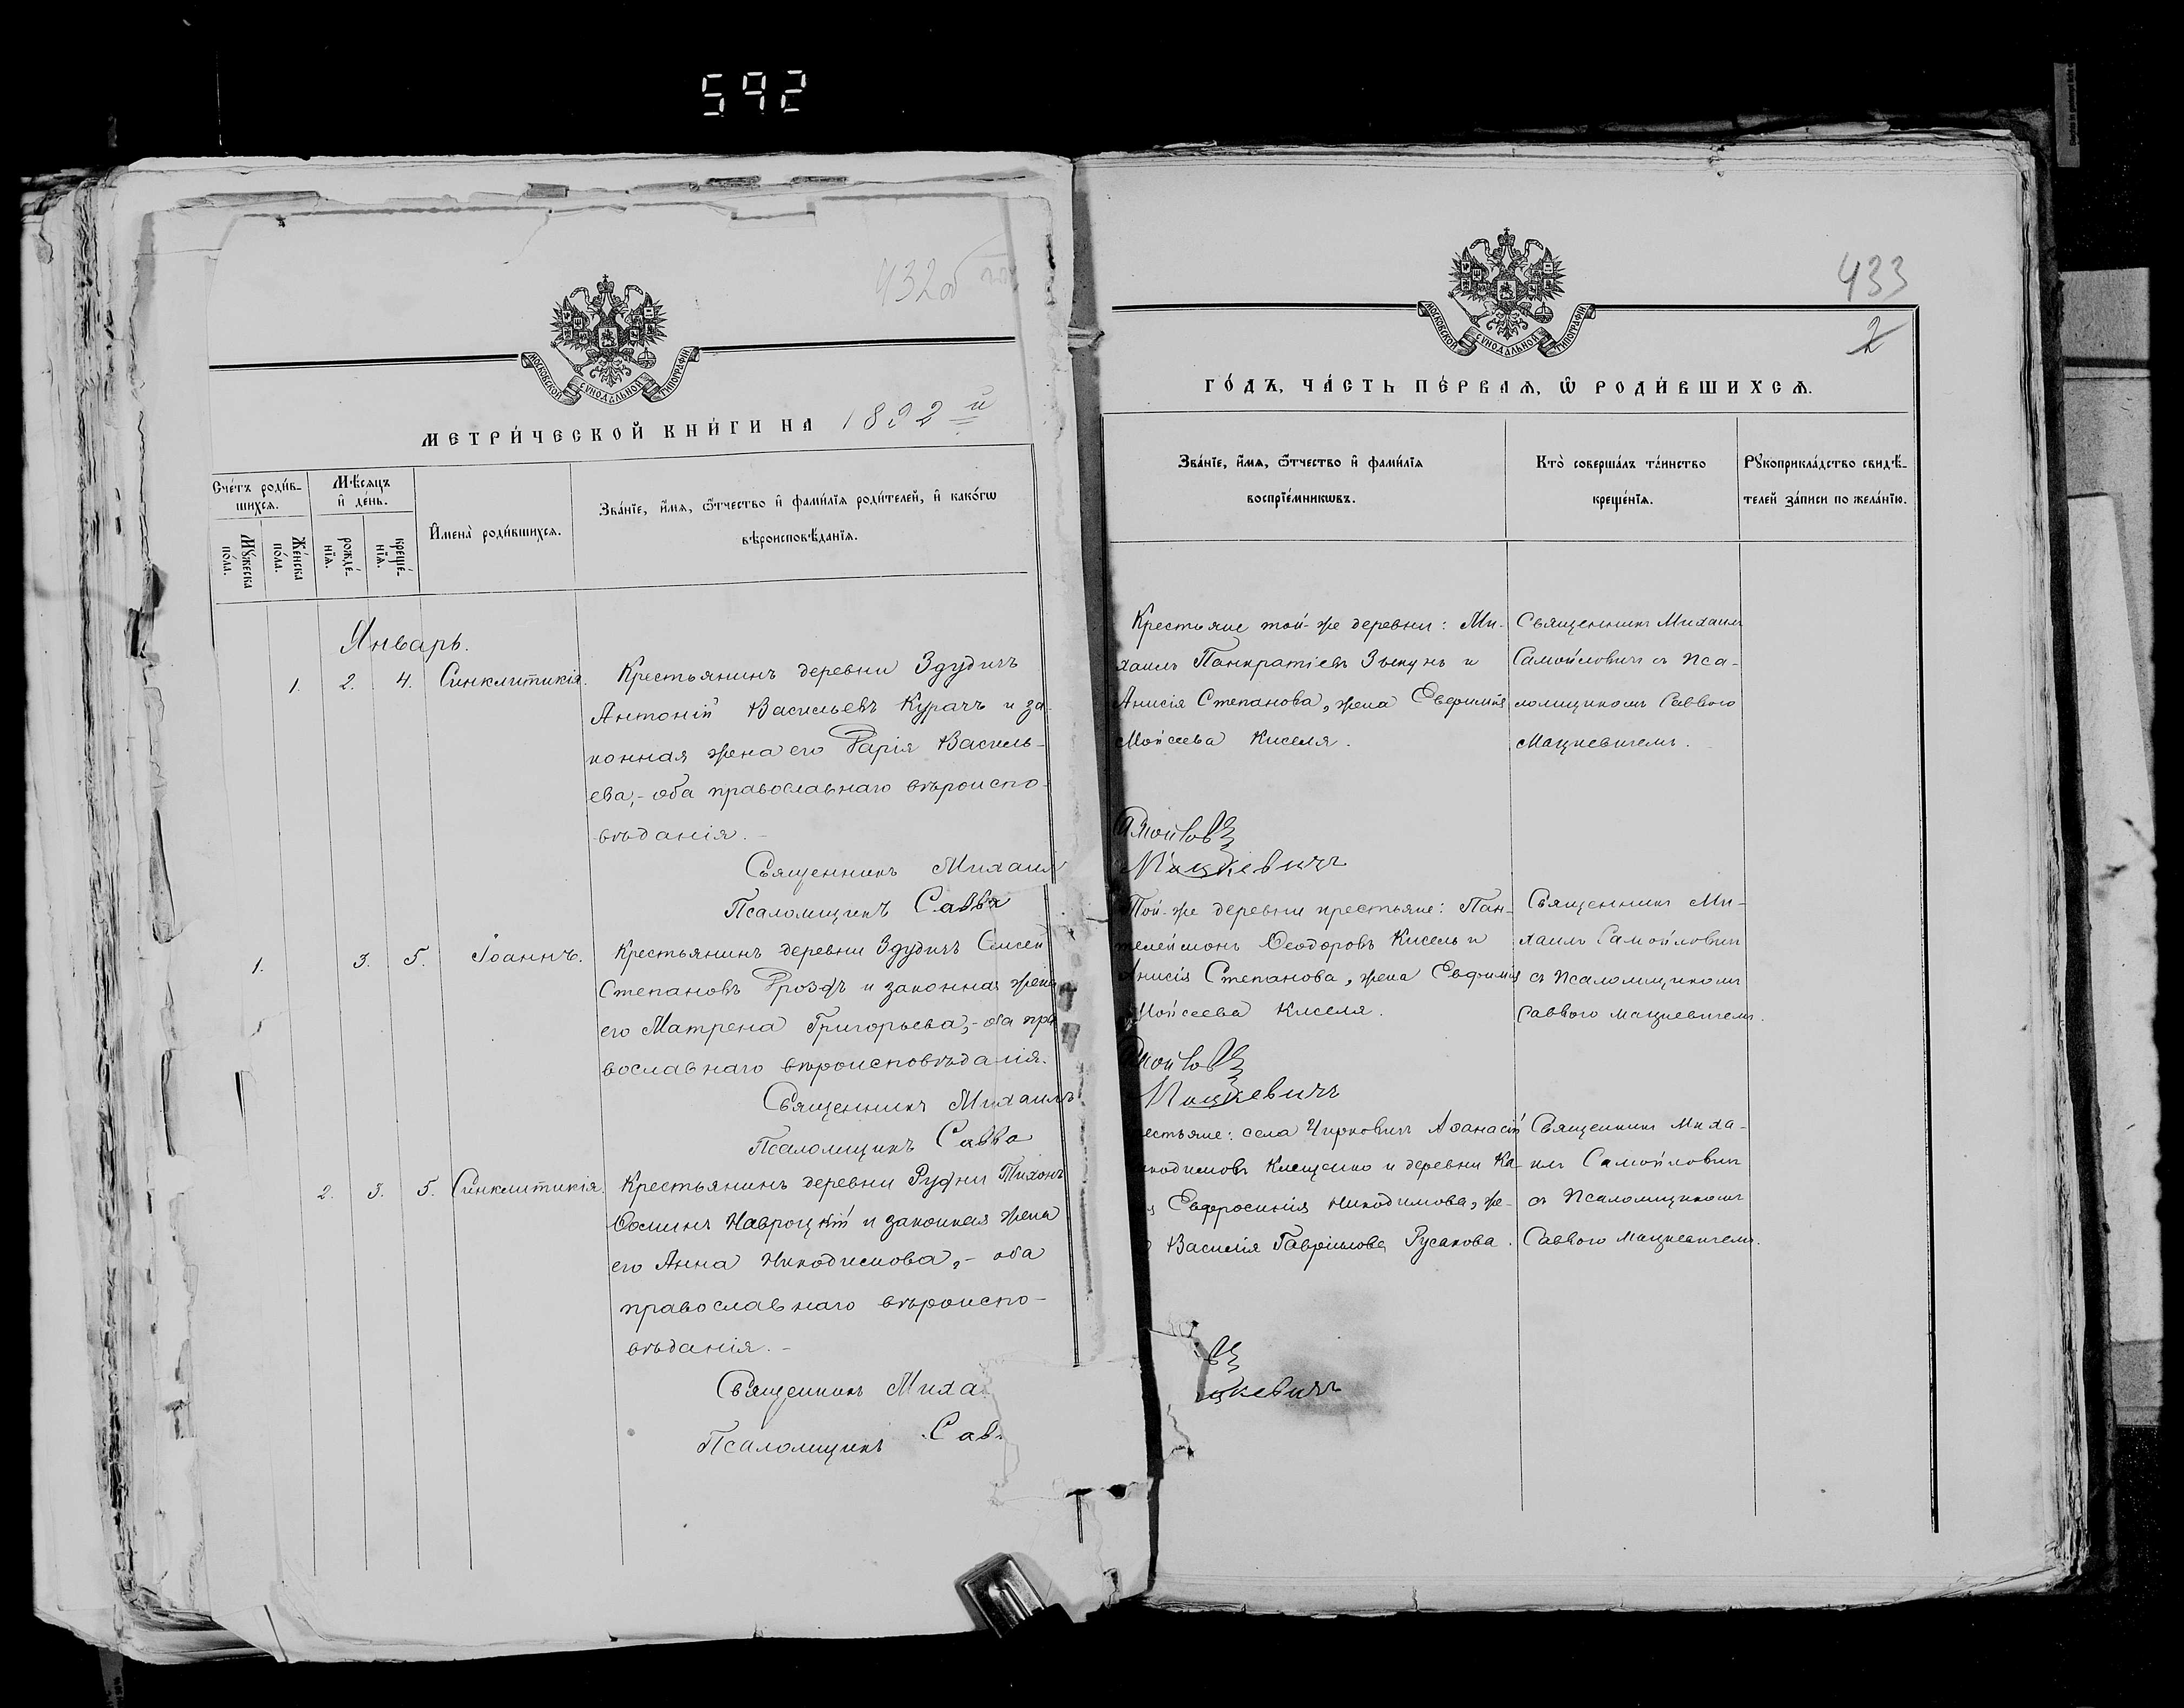 592
432об
МОСКОВСКОЙ СУНОДАЛЬНОЙ ТИПОГРАФІИ
МЕТРИ́ЧЕСКОЙ КНИ́ГИ НА 1892 й
Сче́тъ роди́в-
шихсѧ.
Мѣ́сѧцъ
и҆ де́нь.
Мꙋ́жеска
по́ла.
Же́нска
по́ла.
рожде́-
нїѧ.
креще́-
нїѧ.
И҆мена̀ роди́вшихсѧ.
Зва́нїе, и҆́мѧ, ѻ҆́тчество и҆ фами́лїѧ роди́телей, и҆ како́гѡ
вѣроисповѣ́данїѧ.
Январь.
1. 2. 4. Синклитикія.
Крестьянинъ деревни Здудичъ
Антоній Васильевъ Курачъ и за-
конная жена его Дарія Василь-
ева,- оба православнаго вѣроиспо-
вѣданія.-
Священникъ Михаил
Псаломщикъ Савва
1. 3. 5. Іоаннъ.
Крестьянинъ деревни Здудичъ
Степановъ Дроздъ и законная жена
его Матрена Григорьева,- оба пра
вославнаго вѣроисповѣданія.
Священникъ Михаилъ
Псаломщикъ Савва
2. 3. 5. Синклитикія.
Крестьянинъ деревни Рудни Тихонъ
Ѳоминъ Навроцкій и законная жена
его Анна Никодимова,- оба
православнаго вѣроиспо-
вѣданія.-
Священникъ Миха
Псаломщикъ Сав
433
2
МОСКОВСКОЙ СУНОДАЛЬНОЙ ТИПОГРАФІИ
ГО́ДЪ, ЧА́СТЬ ПЕ́РВАѦ, Ѡ҆ РОДИ́ВШИХСѦ.
Зва́нїе, и҆́мѧ, ѻ҆́тчество и҆ фами́лїѧ
воспрїе́мникѡвъ.
Кто̀ соверша́лъ та́инство
креще́нїѧ.
Рꙋкоприкла́дство свидѣ́-
телей за́писи по жела́нїю.
Крестьяне той-же деревни: Ми-
хаилъ Панкратіевъ Зыкунъ и
Анисія Степанова, жена Евфимія
Моисеева Киселя.
Священникъ Михаилъ
Самойловичъ съ Пса-
ломщикомъ Саввою
Мацкевичемъ.
амойлов
Мацкевичъ
Той-же деревни крестьяне: Пан-
телеймонъ Ѳеодоровъ Кисель и
Анисія Степанова, жена Евфимія
Моисеева Киселя.
Священникъ Ми-
хаилъ Самойловичъ
съ Псаломщикомъ
Саввою Мацкевичемъ.
амойлов
Мацкевичъ
естьяне: села Чирковичъ Аѳанасій
икодимовъ Клещенко и деревни Ка-
Евфросинія Никодимова, же-
Василія Гавріилова Русакова.
Священникъ Миха-
илъ Самойловичъ
съ Псаломщикомъ
Саввою Мацкевичемъ.
в
цкевичъ